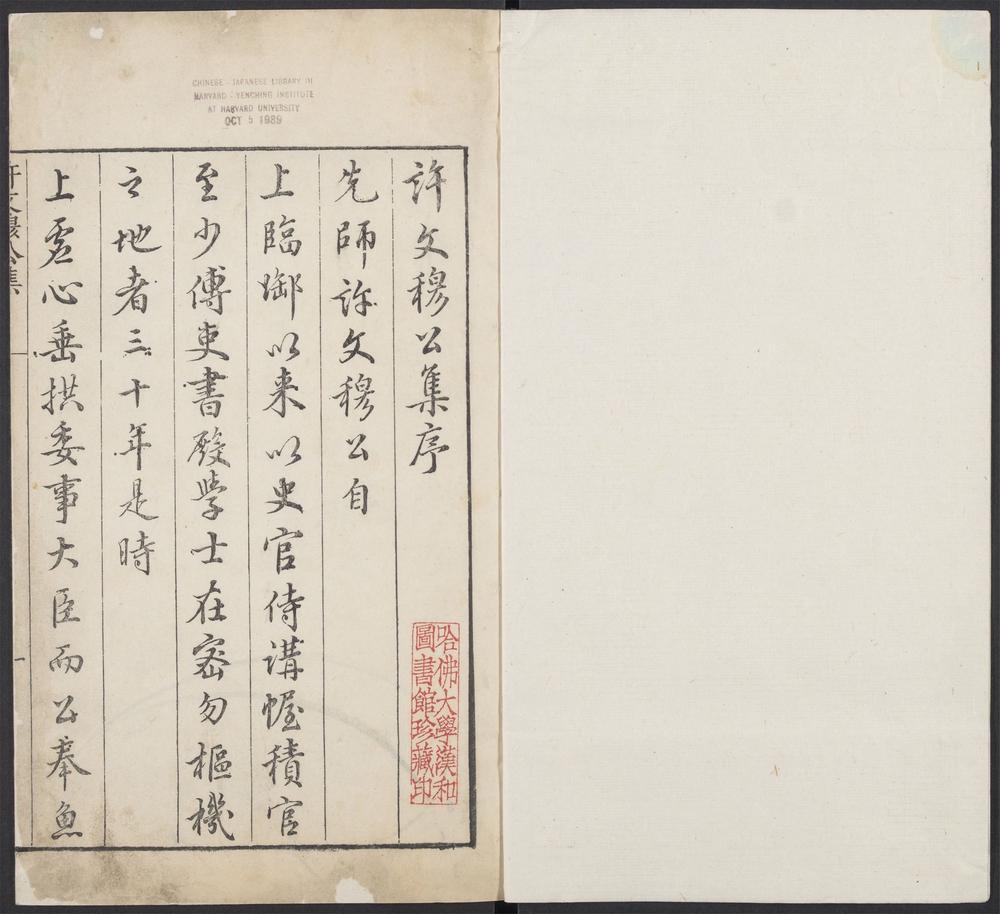 CHINESE - JAPANESE LIBRARY OF
HARVARD - YENCHING INSTITUTE
AT HARVARD UNIVERSITY
OCT 5 1989
許文穆公集序
先師許文穆公自
上臨御以来以史官侍講幄積官
至少傅吏書殿學士在密勿樞機
之地者三十年是時
上虛心垂拱委事大臣而公奉魚
哈佛大學漢和
圖書館珍藏印
許文穆公集
一